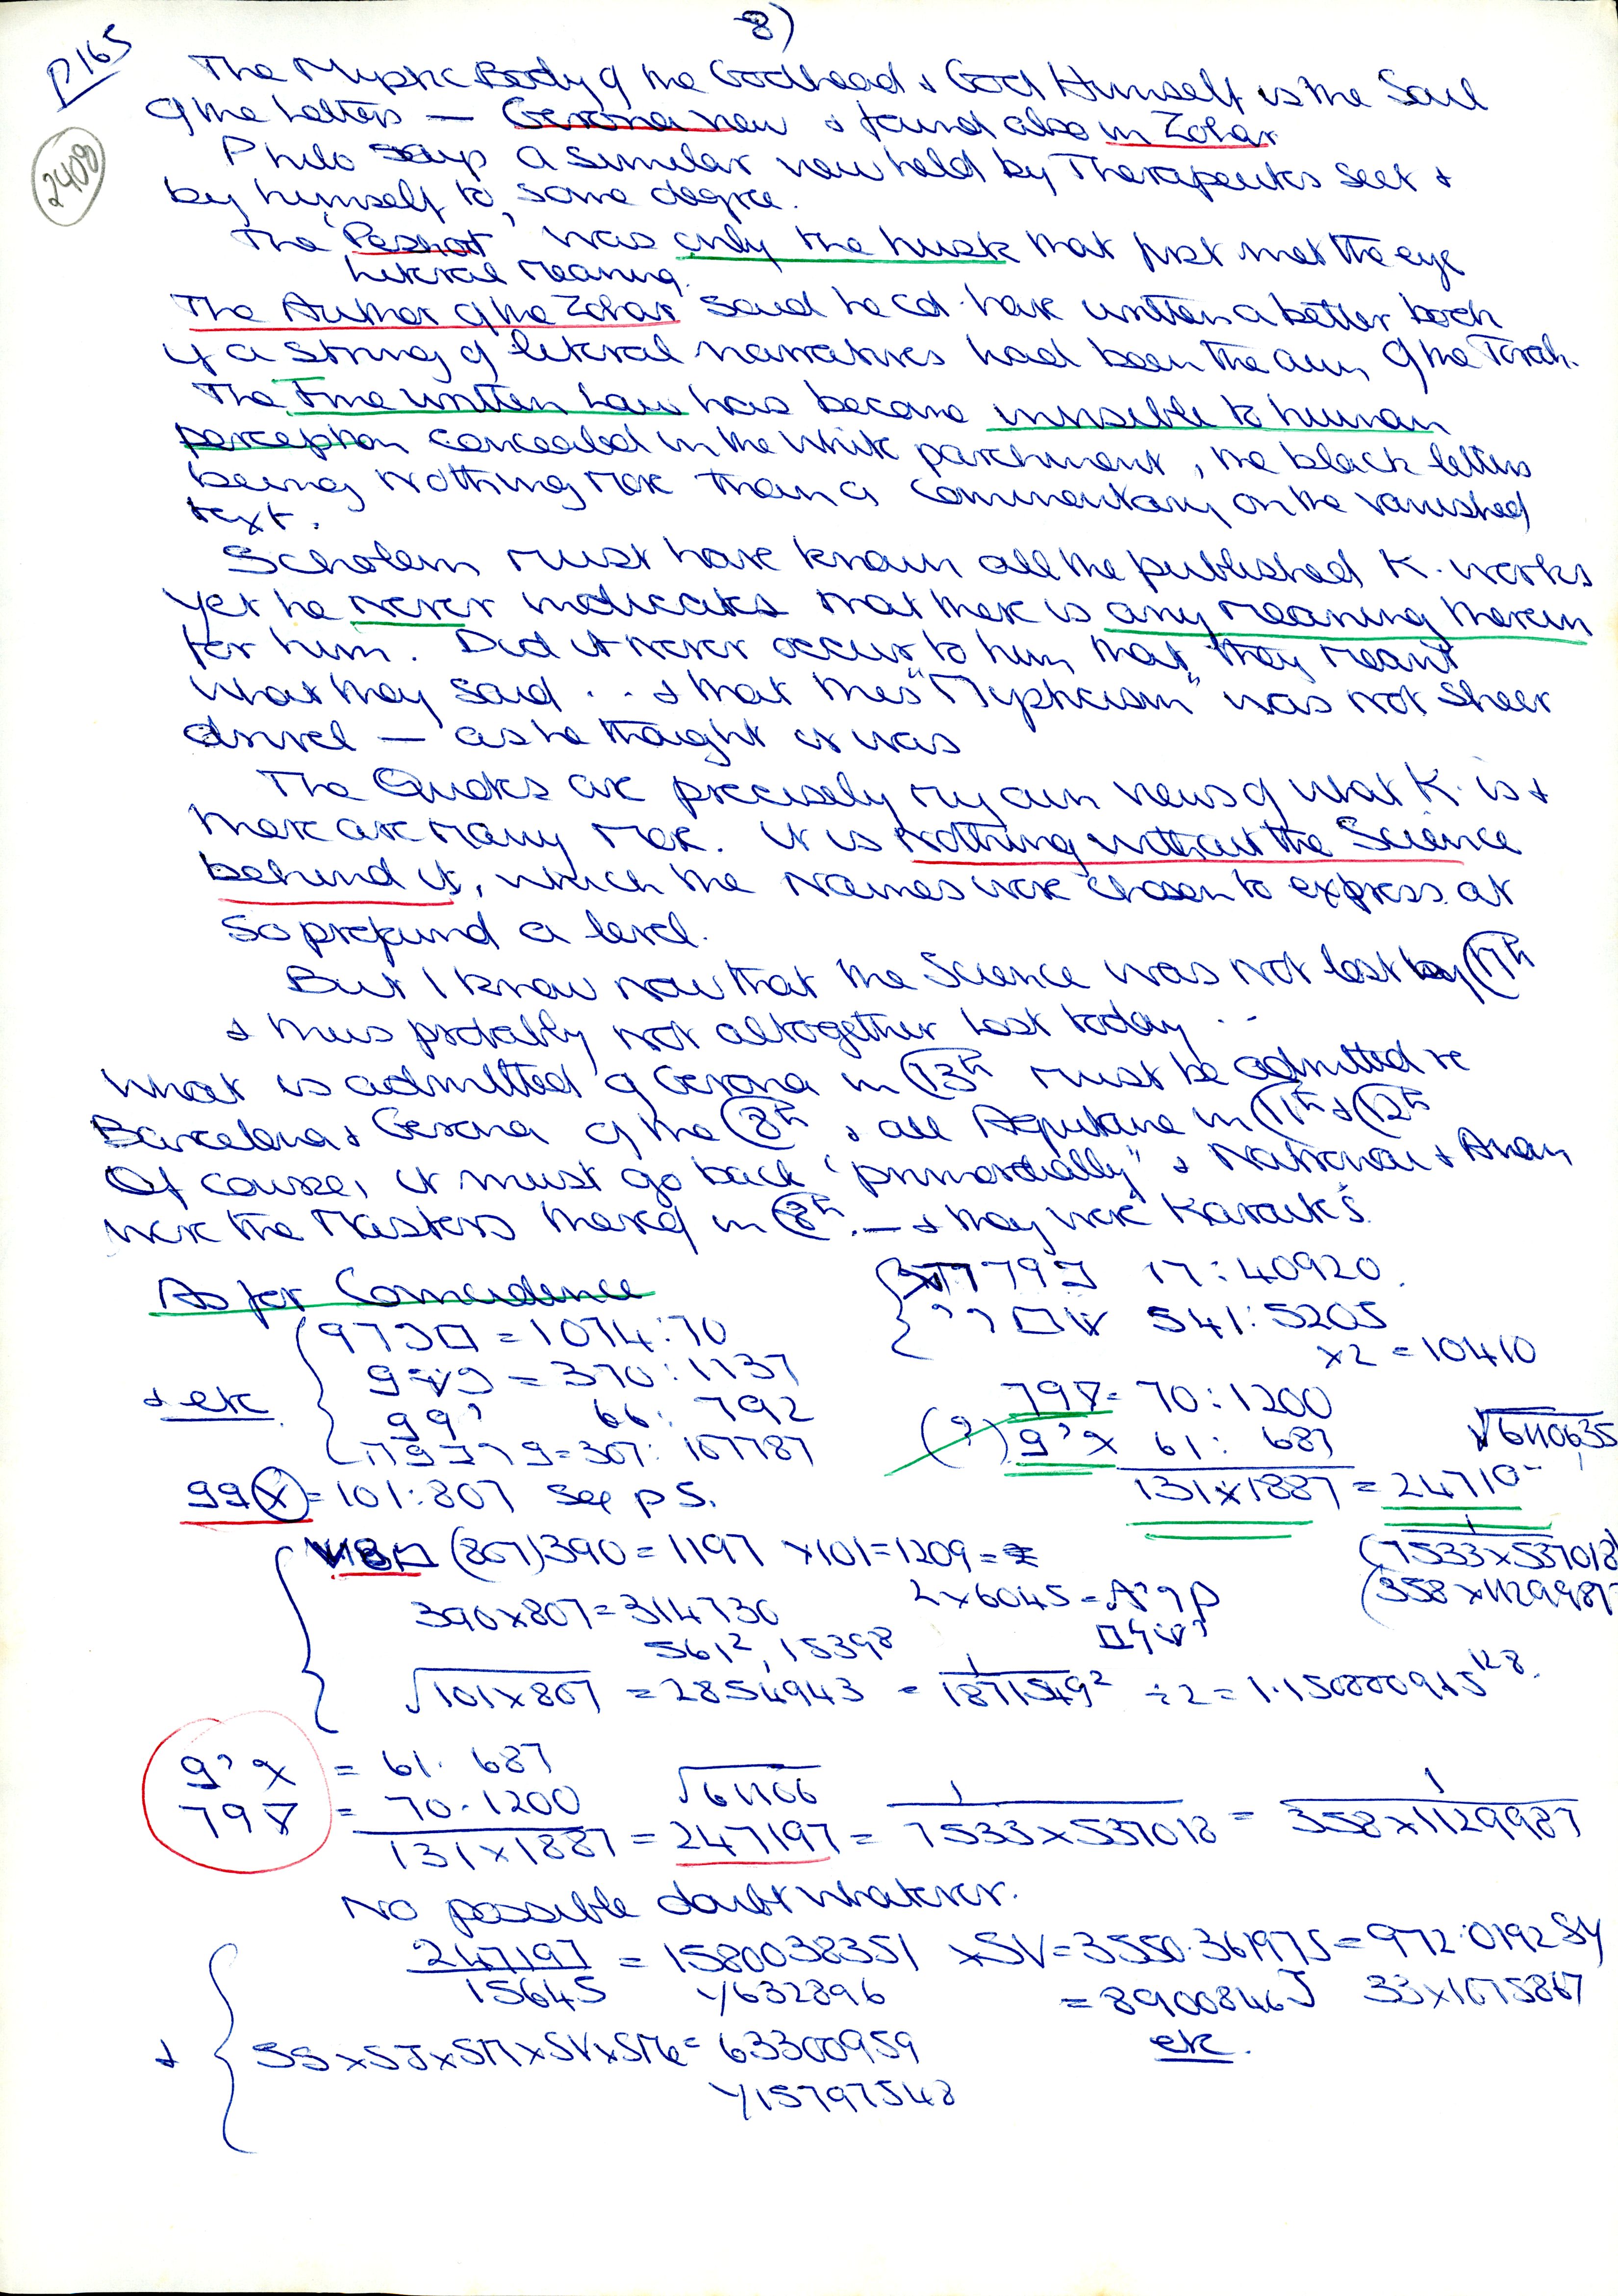 8)
P165
2409
The Mystic Body of the Godhead & God Himself is the Soul
of the Letters — Gerona view & found also in Zohar
Philo says a similar view held by Therapeuts sect &
by himself to some degree.
The 'Peshat' was only the husk that first met the eye
Literal meaning.
The Author of the Zohar said he cd. have written a better book
if a string of literal narratives had been the aim of the Torah.
The true written Law has become invisible to human
perception concealed in the white parchment, the black letters
being nothing more than a commentary on the vanished
text.
Scholem must have known all the published K. works
yet he never indicates that there is any meaning therein
for him. Did it never occur to him that they meant
what they said . . . & that this "Mysticism" was not sheer
drivel — as he thought it was
The Quotes are precisely my own views of what K. is &
there are many more. It is nothing without the Science
behind it, which the Names were chosen to express at
so profund a level.
But I know now that the Science was not lost by 17th
& thus probably not altogether lost today . .
What is admitted of Gerona in 13th must be admitted re
Barcelona & Gerona of the 8th & all Aquitane in 11th & 12th
Of course, it must go back "primordially" & Natronai & Anan
were the Masters thereof in 8th. — & they were "Karaites".
As for Coincidence
= 1074:70
= 370:1137
66: 792
= 307: 107787
& etc.
17:40920.
541:5205
x2 = 10410
= 70:1200
(?) 61: 687
131x1887 = 24710-
√6110635
= 101:807 See p 5.
(807)390 = 1197 x101=1209=
390x807=314730
2x6045 =
561², 15398
(7533x537018
(358x1129987
√101x807 = 2854943 = 1/1871549² ÷2=1.150880915
= 61. 687
= 70.1200
√61166
131x1887 = 247197 = 1/7533x537018 = 1/358x1129987
No possible doubt whatever.
247197/15645 = 1580038351 xSV=3550.361975=972.0192SY
Y632896 = 8900846J 33x1075867
& SSxSJxSMxSVxSMe= 63300959 etc.
Y15797548